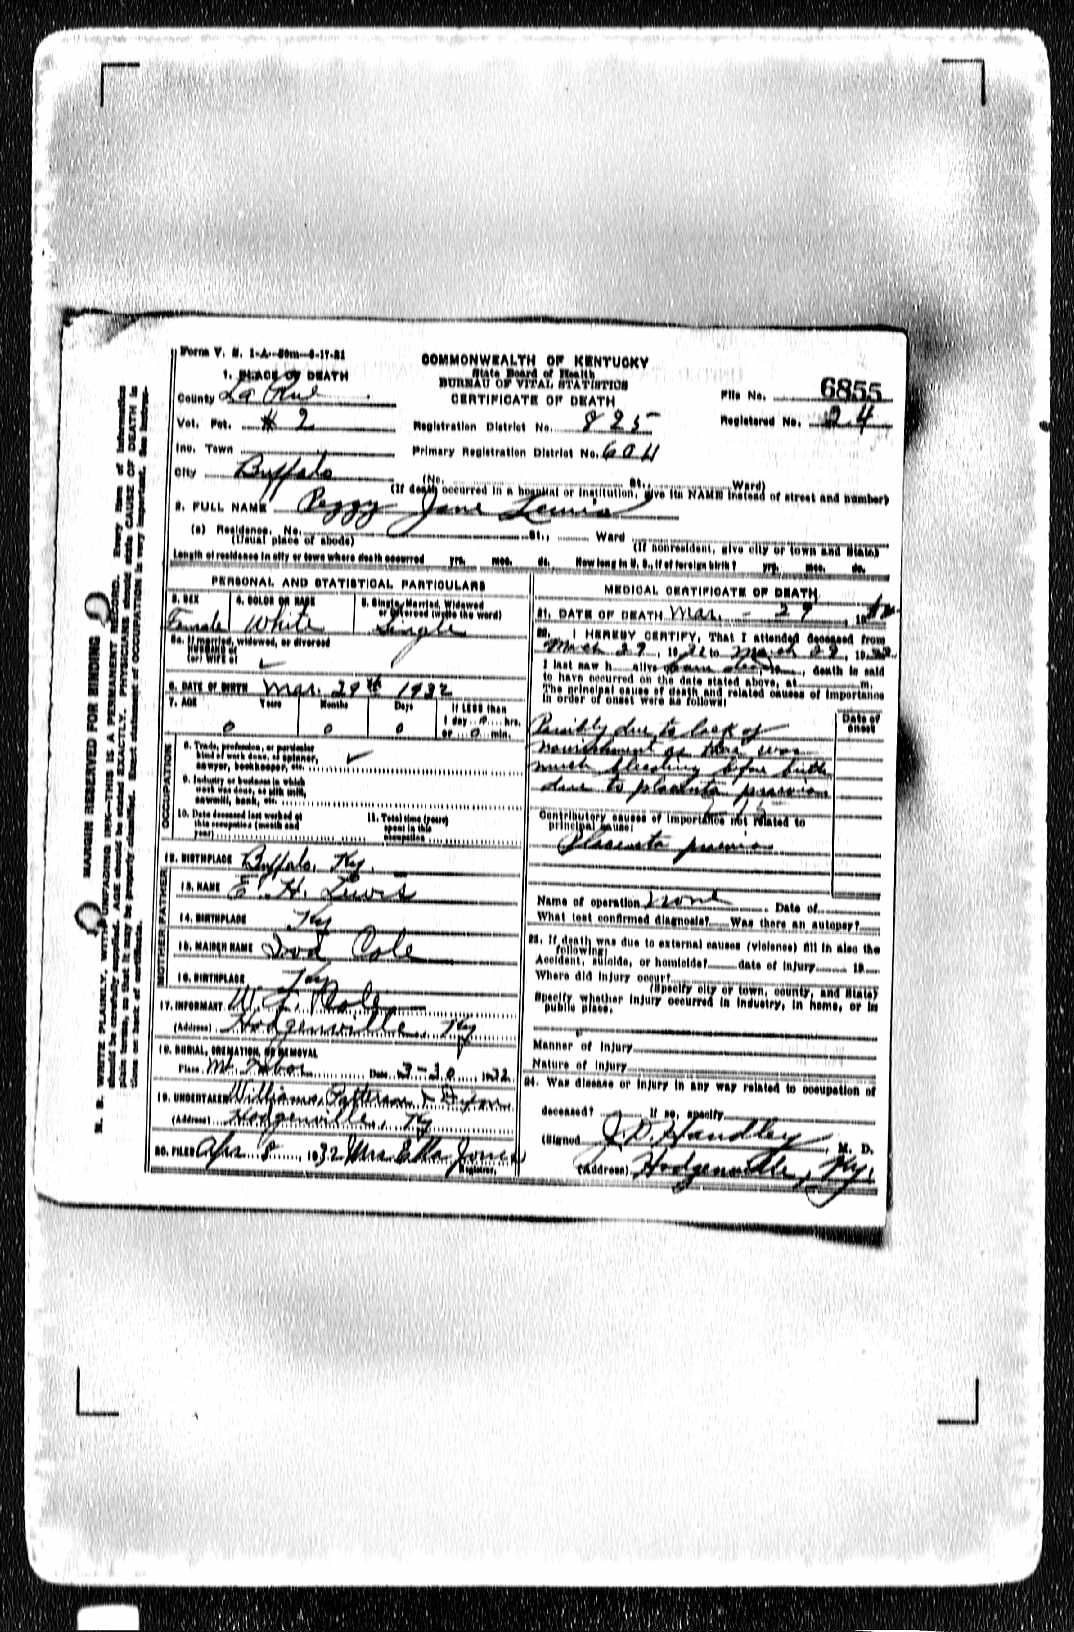 Form V. S. 1-A--50m--6-17-31
COMMONWEALTH OF KENTUCKY
State Board of Health
BUREAU OF VITAL STATISTICS
CERTIFICATE OF DEATH
File No. 6855
Registered No. 24
1. PLACE OF DEATH
County La Rue
Vot. Pct. # 2
Registration District No. 825
Inc. Town
Primary Registration District No. 604
City Buffalo
(No. St., Ward)
(If death occurred in a hospital or institution, give its NAME instead of street and number)
2. FULL NAME Peggy Jane Lewis
(a) Residence. No. St., Ward
(Usual place of abode) (If nonresident, give city or town and State)
Length of residence in city or town where death occurred yrs. mos. ds. How long in U. S., if of foreign birth? yrs. mos. ds.
PERSONAL AND STATISTICAL PARTICULARS
3. SEX Female
4. COLOR OR RACE White
5. Single, Married, Widowed or Divorced (write the word) Single
5a. If married, widowed, or divorced
HUSBAND of
(or) WIFE of
6. DATE OF BIRTH Mar. 29th 1932
7. AGE Years Months Days If LESS than
1 day 0 hrs.
0 0 0 or 0 min.
OCCUPATION
8. Trade, profession, or particular
kind of work done, as spinner,
sawyer, bookkeeper, etc.
9. Industry or business in which
work was done, as silk mill,
sawmill, bank, etc.
10. Date deceased last worked at
this occupation (month and
year)
11. Total time (years)
spent in this
occupation
12. BIRTHPLACE Buffalo, Ky.
FATHER
13. NAME E. H. Lewis
14. BIRTHPLACE Ky
MOTHER
15. MAIDEN NAME Cole
16. BIRTHPLACE Ky
17. INFORMANT W. L. Cole
(Address) Hodgenville, Ky
18. BURIAL, CREMATION, OR REMOVAL
Place Mt. Tabor Date 3-30 1932
19. UNDERTAKER Williams, Patterson & Dixon
(Address) Hodgenville, Ky
20. FILED Apr 8, 1932 Mrs Etta Jones
Registrar.
MEDICAL CERTIFICATE OF DEATH
21. DATE OF DEATH Mar. - 29, 1932
22. I HEREBY CERTIFY, That I attended deceased from
March 29, 1932 to March 29, 1932.
I last saw h alive born dead, death is said
to have occurred on the date stated above, at m.
The principal cause of death and related causes of importance
in order of onset were as follows:
Date of
onset
Possibly due to lack of
nourishment as there was
much bleeding before birth
due to placenta praevia
Contributory causes of importance not related to
principal cause:
Placenta praevia
Name of operation none Date of
What test confirmed diagnosis? Was there an autopsy?
23. If death was due to external causes (violence) fill in also the
following:
Accident, suicide, or homicide? date of injury 19
Where did injury occur?
(Specify city or town, county, and State)
Specify whether injury occurred in industry, in home, or in
public place.
Manner of injury
Nature of injury
24. Was disease or injury in any way related to occupation of
deceased? If so, specify
(Signed J. D. Handley, M. D.
(Address) Hodgenville, Ky.
MARGIN RESERVED FOR BINDING
N. B. WRITE PLAINLY, WITH UNFADING INK—THIS IS A PERMANENT Every item of information
should be carefully supplied. AGE should be stated EXACTLY. PHYSICIANS should state CAUSE OF DEATH in
plain terms, so that it may be properly classified. Exact statement of OCCUPATION is very important. See instruc-
tions on back of certificate.